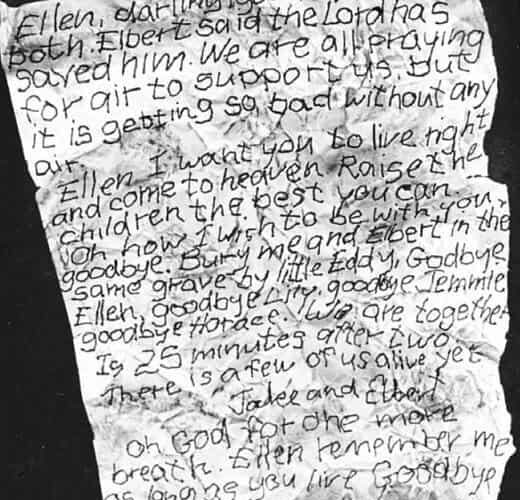 Ellen, darling,
both. Elbert said the Lord has
saved him. We are all praying
for air to support us, but
it is getting so bad without any
air.
Ellen I want you to live right
and come to heaven. Raise the
children the best you can.
Oh how I wish to be with you,
goodbye. Bury me and Elbert in the
same grave by little Eddy, Godbye
Ellen, goodbye Lily, goodbye Jemmie
goodbye Horace. We are together
Is 25 minutes after two
There is a few of us alive yet
Jake and Elbert
Oh God for one more
breath. Ellen remember me
as long as you live Goodbye